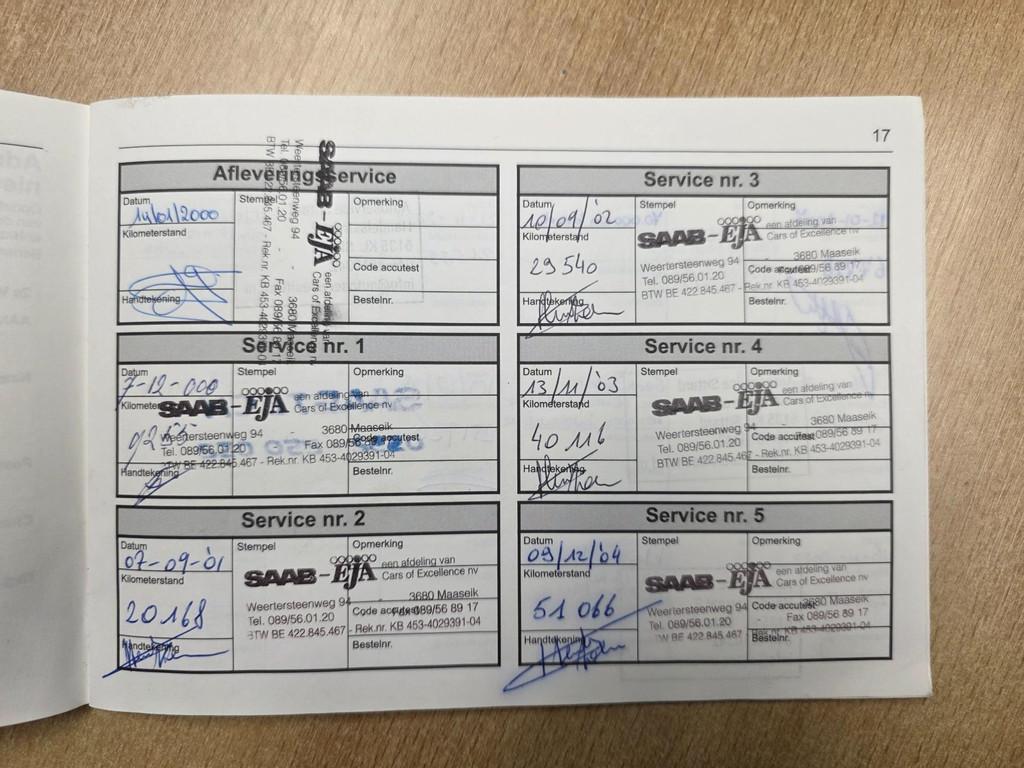 17
Afleveringsservice
Datum
14/01/2000
Stempel
Opmerking
Kilometerstand
Code accutest
Handtekening
Bestelnr.
SAAB-EJA een afdeling van
Cars of Excellence nv
Weertersteenweg 94 3680 Maaseik
Tel. 089/56.01.20 Fax 089/56 89 17
BTW BE 422.845.467 - Rek.nr. KB 453-4029391-04
Service nr. 1
Datum
7-12-000
Stempel
Opmerking
Kilometerstand
SAAB-EJA een afdeling van
Cars of Excellence nv
Weertersteenweg 94 3680 Maaseik
Tel. 089/56.01.20 Fax 089/56 89 17
BTW BE 422.845.467 - Rek.nr. KB 453-4029391-04
Code accutest
Handtekening
Bestelnr.
Service nr. 2
Datum
07-09-'01
Stempel
Opmerking
Kilometerstand
20168
SAAB-EJA een afdeling van
Cars of Excellence nv
Weertersteenweg 94 3680 Maaseik
Tel. 089/56.01.20 Fax 089/56 89 17
BTW BE 422.845.467 - Rek.nr. KB 453-4029391-04
Code accutest
Handtekening
Bestelnr.
Service nr. 3
Datum
10/09/'02
Stempel
Opmerking
Kilometerstand
29540
SAAB-EJA een afdeling van
Cars of Excellence nv
Weertersteenweg 94 3680 Maaseik
Tel. 089/56.01.20 Fax 089/56 89 17
BTW BE 422.845.467 - Rek.nr. KB 453-4029391-04
Code accutest
Handtekening
Bestelnr.
Service nr. 4
Datum
13/11/'03
Stempel
Opmerking
Kilometerstand
40116
SAAB-EJA een afdeling van
Cars of Excellence nv
Weertersteenweg 94 3680 Maaseik
Tel. 089/56.01.20 Fax 089/56 89 17
BTW BE 422.845.467 - Rek.nr. KB 453-4029391-04
Code accutest
Handtekening
Bestelnr.
Service nr. 5
Datum
09/12/'04
Stempel
Opmerking
Kilometerstand
51066
SAAB-EJA een afdeling van
Cars of Excellence nv
Weertersteenweg 94 3680 Maaseik
Tel. 089/56.01.20 Fax 089/56 89 17
BTW BE 422.845.467 - Rek.nr. KB 453-4029391-04
Code accutest
Handtekening
Bestelnr.